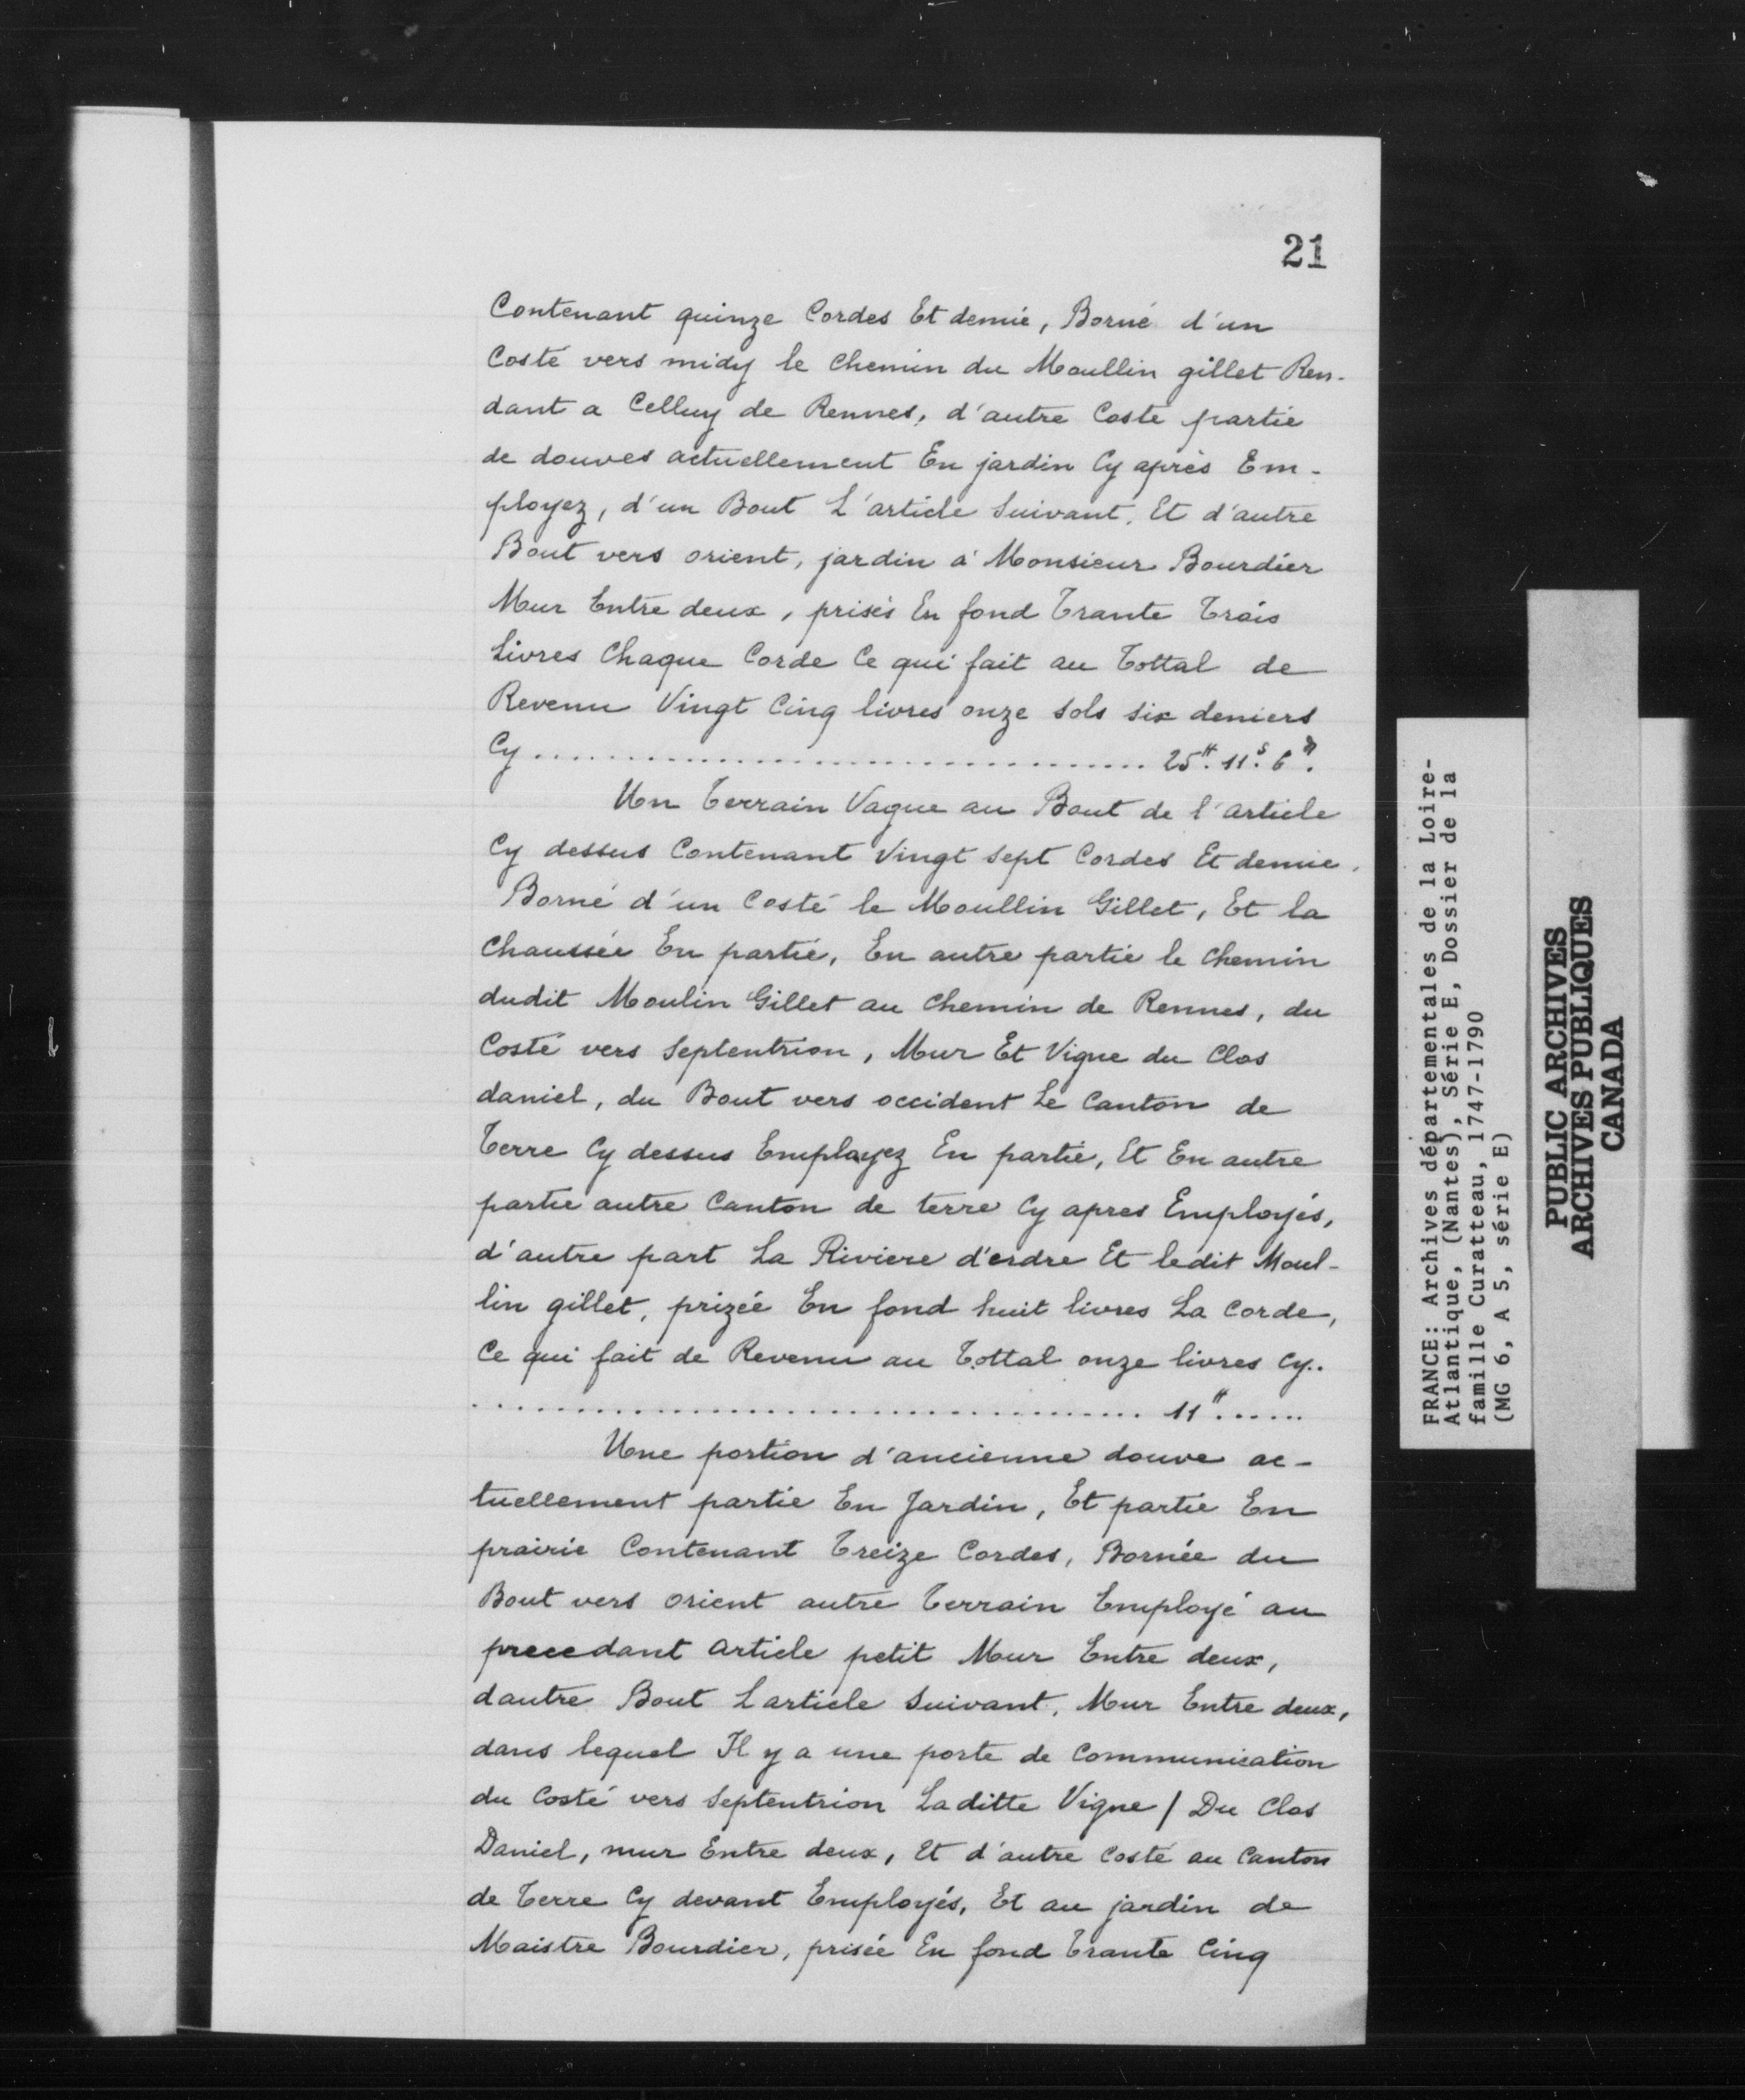 21
Contenant quinze Cordes Et demie, Borné d'un
Costé vers midy le Chemin du Moullin gillet Ren-
dant a Celluy de Rennes, d'autre Costé partie
de douves actuellement En jardin Cy après Em-
ployez, d'un Bout L'article Suivant, Et d'autre
Bout vers orient, jardin à Monsieur Bourdier
Mur Entre deux, prisés En fond Trante Trois
Livres Chaque Corde Ce qui fait au Tottal de
Revenu Vingt Cinq livres onze sols six deniers
Cy .............................. 25tt. 11s. 6d.
Un Terrain Vague au Bout de l'article
Cy dessus Contenant Vingt Sept Cordes Et demie.
Borné d'un Costé le Moullin Gillet, Et la
Chaussée En partie, En autre partie le Chemin
dudit Moulin Gillet au Chemin de Rennes, du
Costé vers Septentrion, Mur Et Vigne du Clos
daniel, du Bout vers occident Le Canton de
Terre Cy dessus Employez En partie, Et En autre
partie autre Canton de terre Cy apres Employés,
d'autre part La Riviere d'erdre Et ledit Moul-
lin gillet, prizée En fond huit livres La Corde,
Ce qui fait de Revenu au Tottal onze livres Cy..
.............................. 11tt......
Une portion d'ancienne douve ac-
tuellement partie En Jardin, Et partie En
prairie Contenant Treize Cordes, Bornée du
Bout vers Orient autre Terrain Employé au
precedant article petit Mur Entre deux,
dautre Bout Larticle Suivant, Mur Entre deux,
dans lequel Il y a une porte de Communication
du Costé vers Septentrion Laditte Vigne / Du Clos
Daniel, mur Entre deux, Et d'autre Costé au Canton
de Terre Cy devant Employés, Et au jardin de
Maistre Bourdier, prisée En fond Trante Cinq
FRANCE: Archives départementales de la Loire-
Atlantique, (Nantes), Série E, Dossier de la
famille Curatteau, 1747-1790
(MG 6, A 5, série E)
PUBLIC ARCHIVES
ARCHIVES PUBLIQUES
CANADA